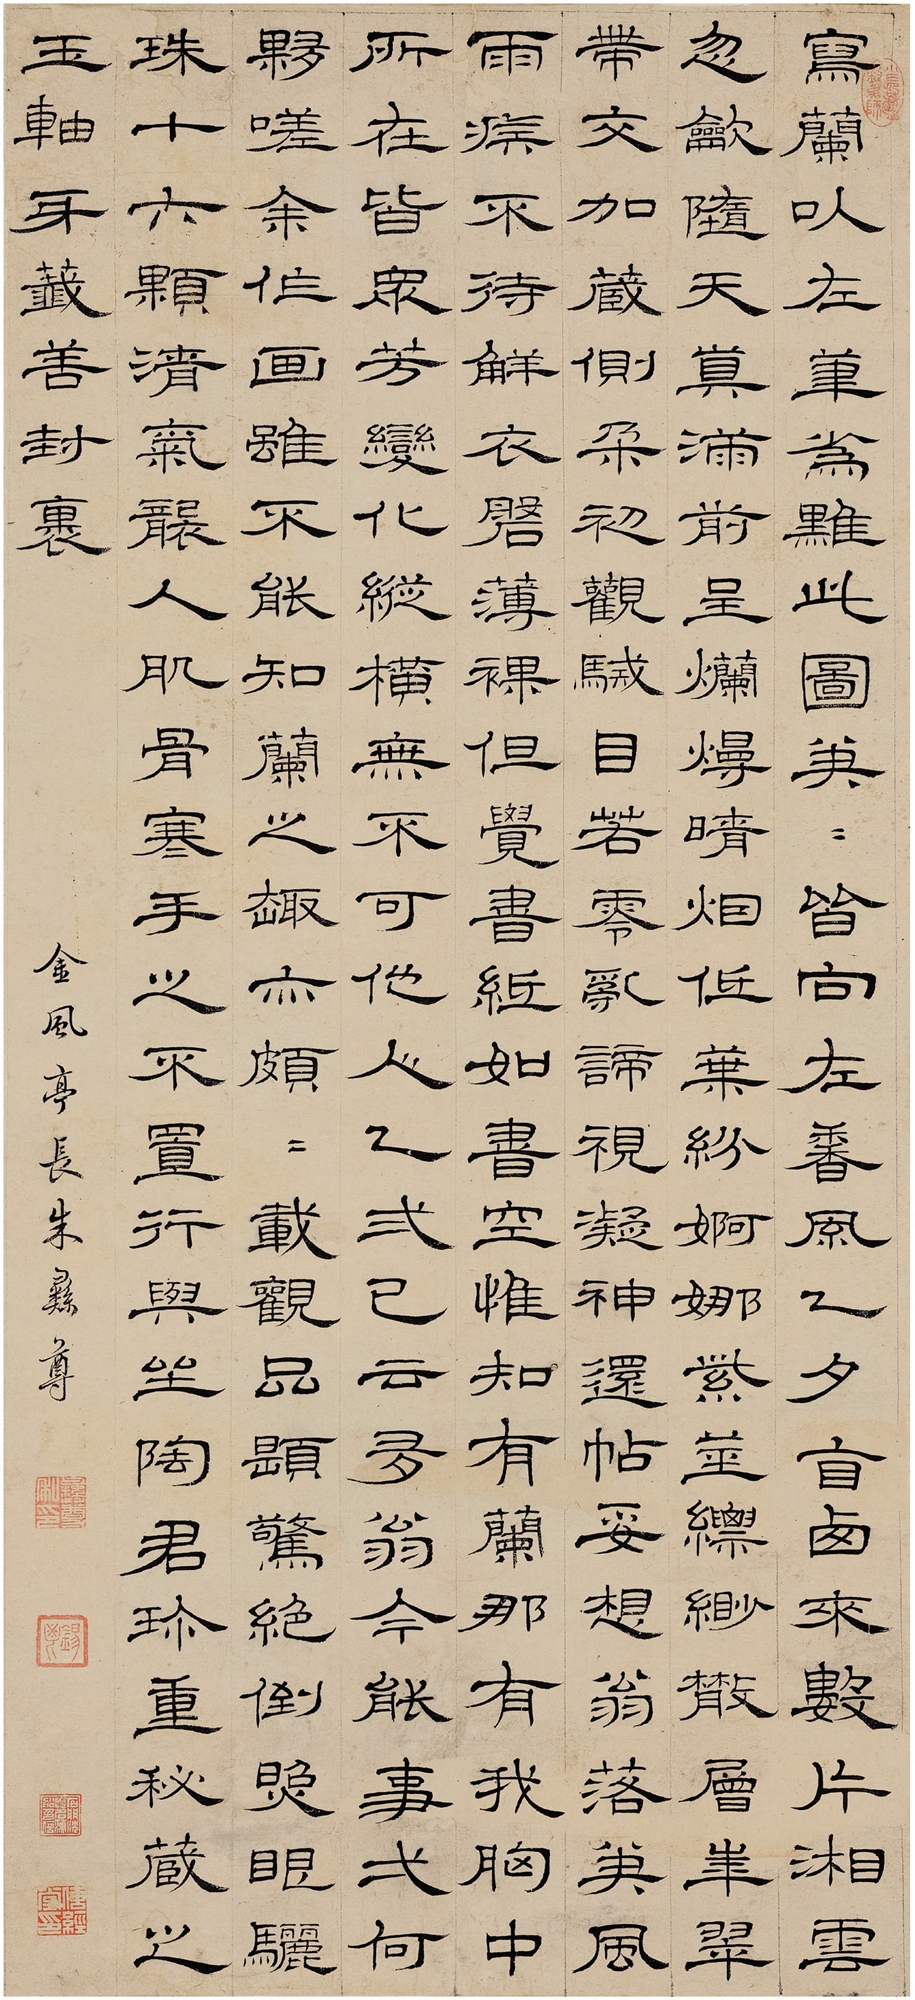 寫蘭以左筆為難此圖英〻皆向左香風一夕盲卤來數片湘雲
忽歙隨天真滿前呈爛熳晴烟低葉紛婀娜紫莖縹緲散層崖翠
帶交加蔵側朶初觀駴目若零亂諦視凝神還帖妥想翁落笔風
雨疾不待觧衣磐薄裸但覺書紙如書空惟知有蘭那有我胸中
所在皆眾芳變化縱橫無不可他人一弎已云多翁今能事弌何
夥嗟余作画雖不能知蘭之趣亦頗〻載觀品題驚絕倒照眼驪
珠十六顆清氣襲人肌骨寒手之不置行與坐陶君珎重秘藏之
玉軸牙籤善封裹
金風亭長朱彝尊